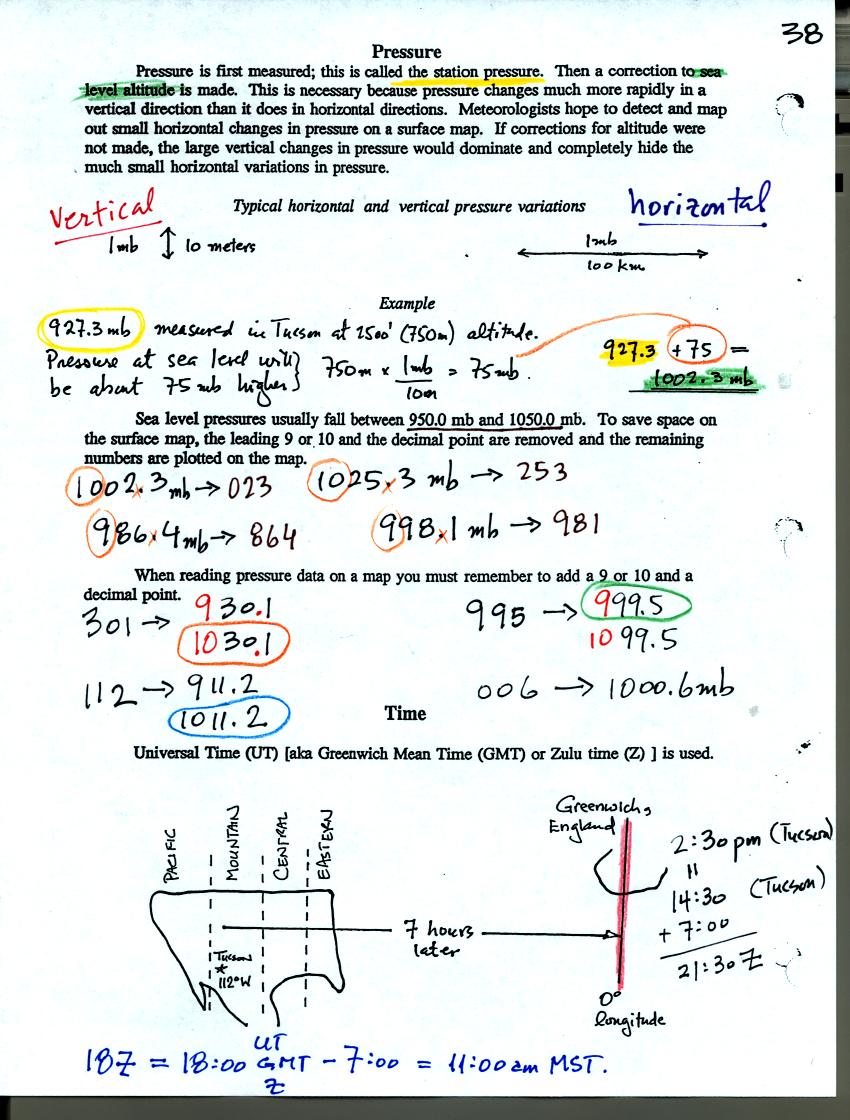 38
Pressure
Pressure is first measured; this is called the station pressure. Then a correction to sea
level altitude is made. This is necessary because pressure changes much more rapidly in a
vertical direction than it does in horizontal directions. Meteorologists hope to detect and map
out small horizontal changes in pressure on a surface map. If corrections for altitude were
not made, the large vertical changes in pressure would dominate and completely hide the
much small horizontal variations in pressure.
vertical
Typical horizontal and vertical pressure variations
horizontal
1mb ↕ 10 meters
1mb
100 km
Example
927.3 mb measured in Tucson at 2500' (750m) altitude.
Pressure at sea level will
be about 75 mb higher
750m x 1mb/10m = 75mb.
927.3 + 75 =
1002.3 mb
Sea level pressures usually fall between 950.0 mb and 1050.0 mb. To save space on
the surface map, the leading 9 or 10 and the decimal point are removed and the remaining
numbers are plotted on the map.
1002.3 mb → 023
1025.3 mb → 253
986.4 mb → 864
998.1 mb → 981
When reading pressure data on a map you must remember to add a 9 or 10 and a
decimal point.
301 → 930.1
1030.1
995 → 999.5
1099.5
112 → 911.2
1011.2
006 → 1000.6mb
Time
Universal Time (UT) [aka Greenwich Mean Time (GMT) or Zulu time (Z) ] is used.
PACIFIC
MOUNTAIN
CENTRAL
EASTERN
Tucson
*
112°W
7 hours
later
Greenwich,
England
0°
longitude
2:30pm (Tucson)
=
14:30 (Tucson)
+ 7:00
21:30 Z
18Z = 18:00 GMT - 7:00 = 11:00 am MST.
UT
Z